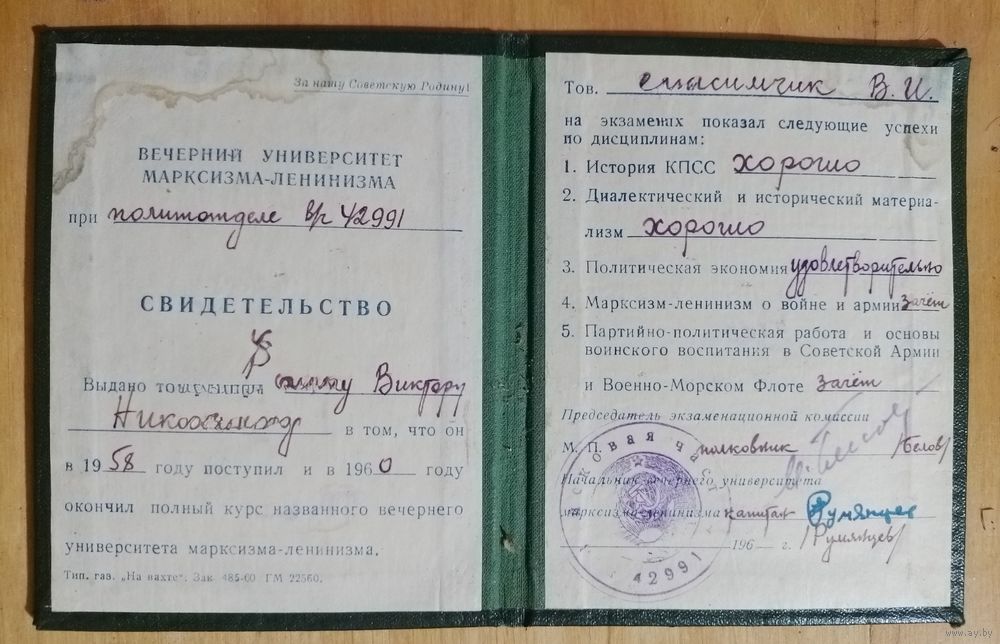 За нашу Советскую Родину!
ВЕЧЕРНИЙ УНИВЕРСИТЕТ
МАРКСИЗМА-ЛЕНИНИЗМА
при политотделе в/ч 42991
СВИДЕТЕЛЬСТВО
Выдано Виктору
в том, что он
в 1958 году поступил и в 1960 году
окончил полный курс названного вечернего
университета марксизма-ленинизма.
Тип. газ. „На вахте". Зак. 485-60 ГМ 22560.
Тов. В. И.
на экзаменах показал следующие успехи
по дисциплинам:
1. История КПСС хорошо
2. Диалектический и исторический материа-
лизм хорошо
3. Политическая экономия удовлетворительно
4. Марксизм-ленинизм о войне и армии зачет
5. Партийно-политическая работа и основы
воинского воспитания в Советской Армии
и Военно-Морском Флоте зачет
Председатель экзаменационной комиссии
М. П. полковник /Белов/
Начальник вечернего университета
марксизма-ленинизма капитан Румянцев
/Румянцев/
196 г.
42991
www.ay.by